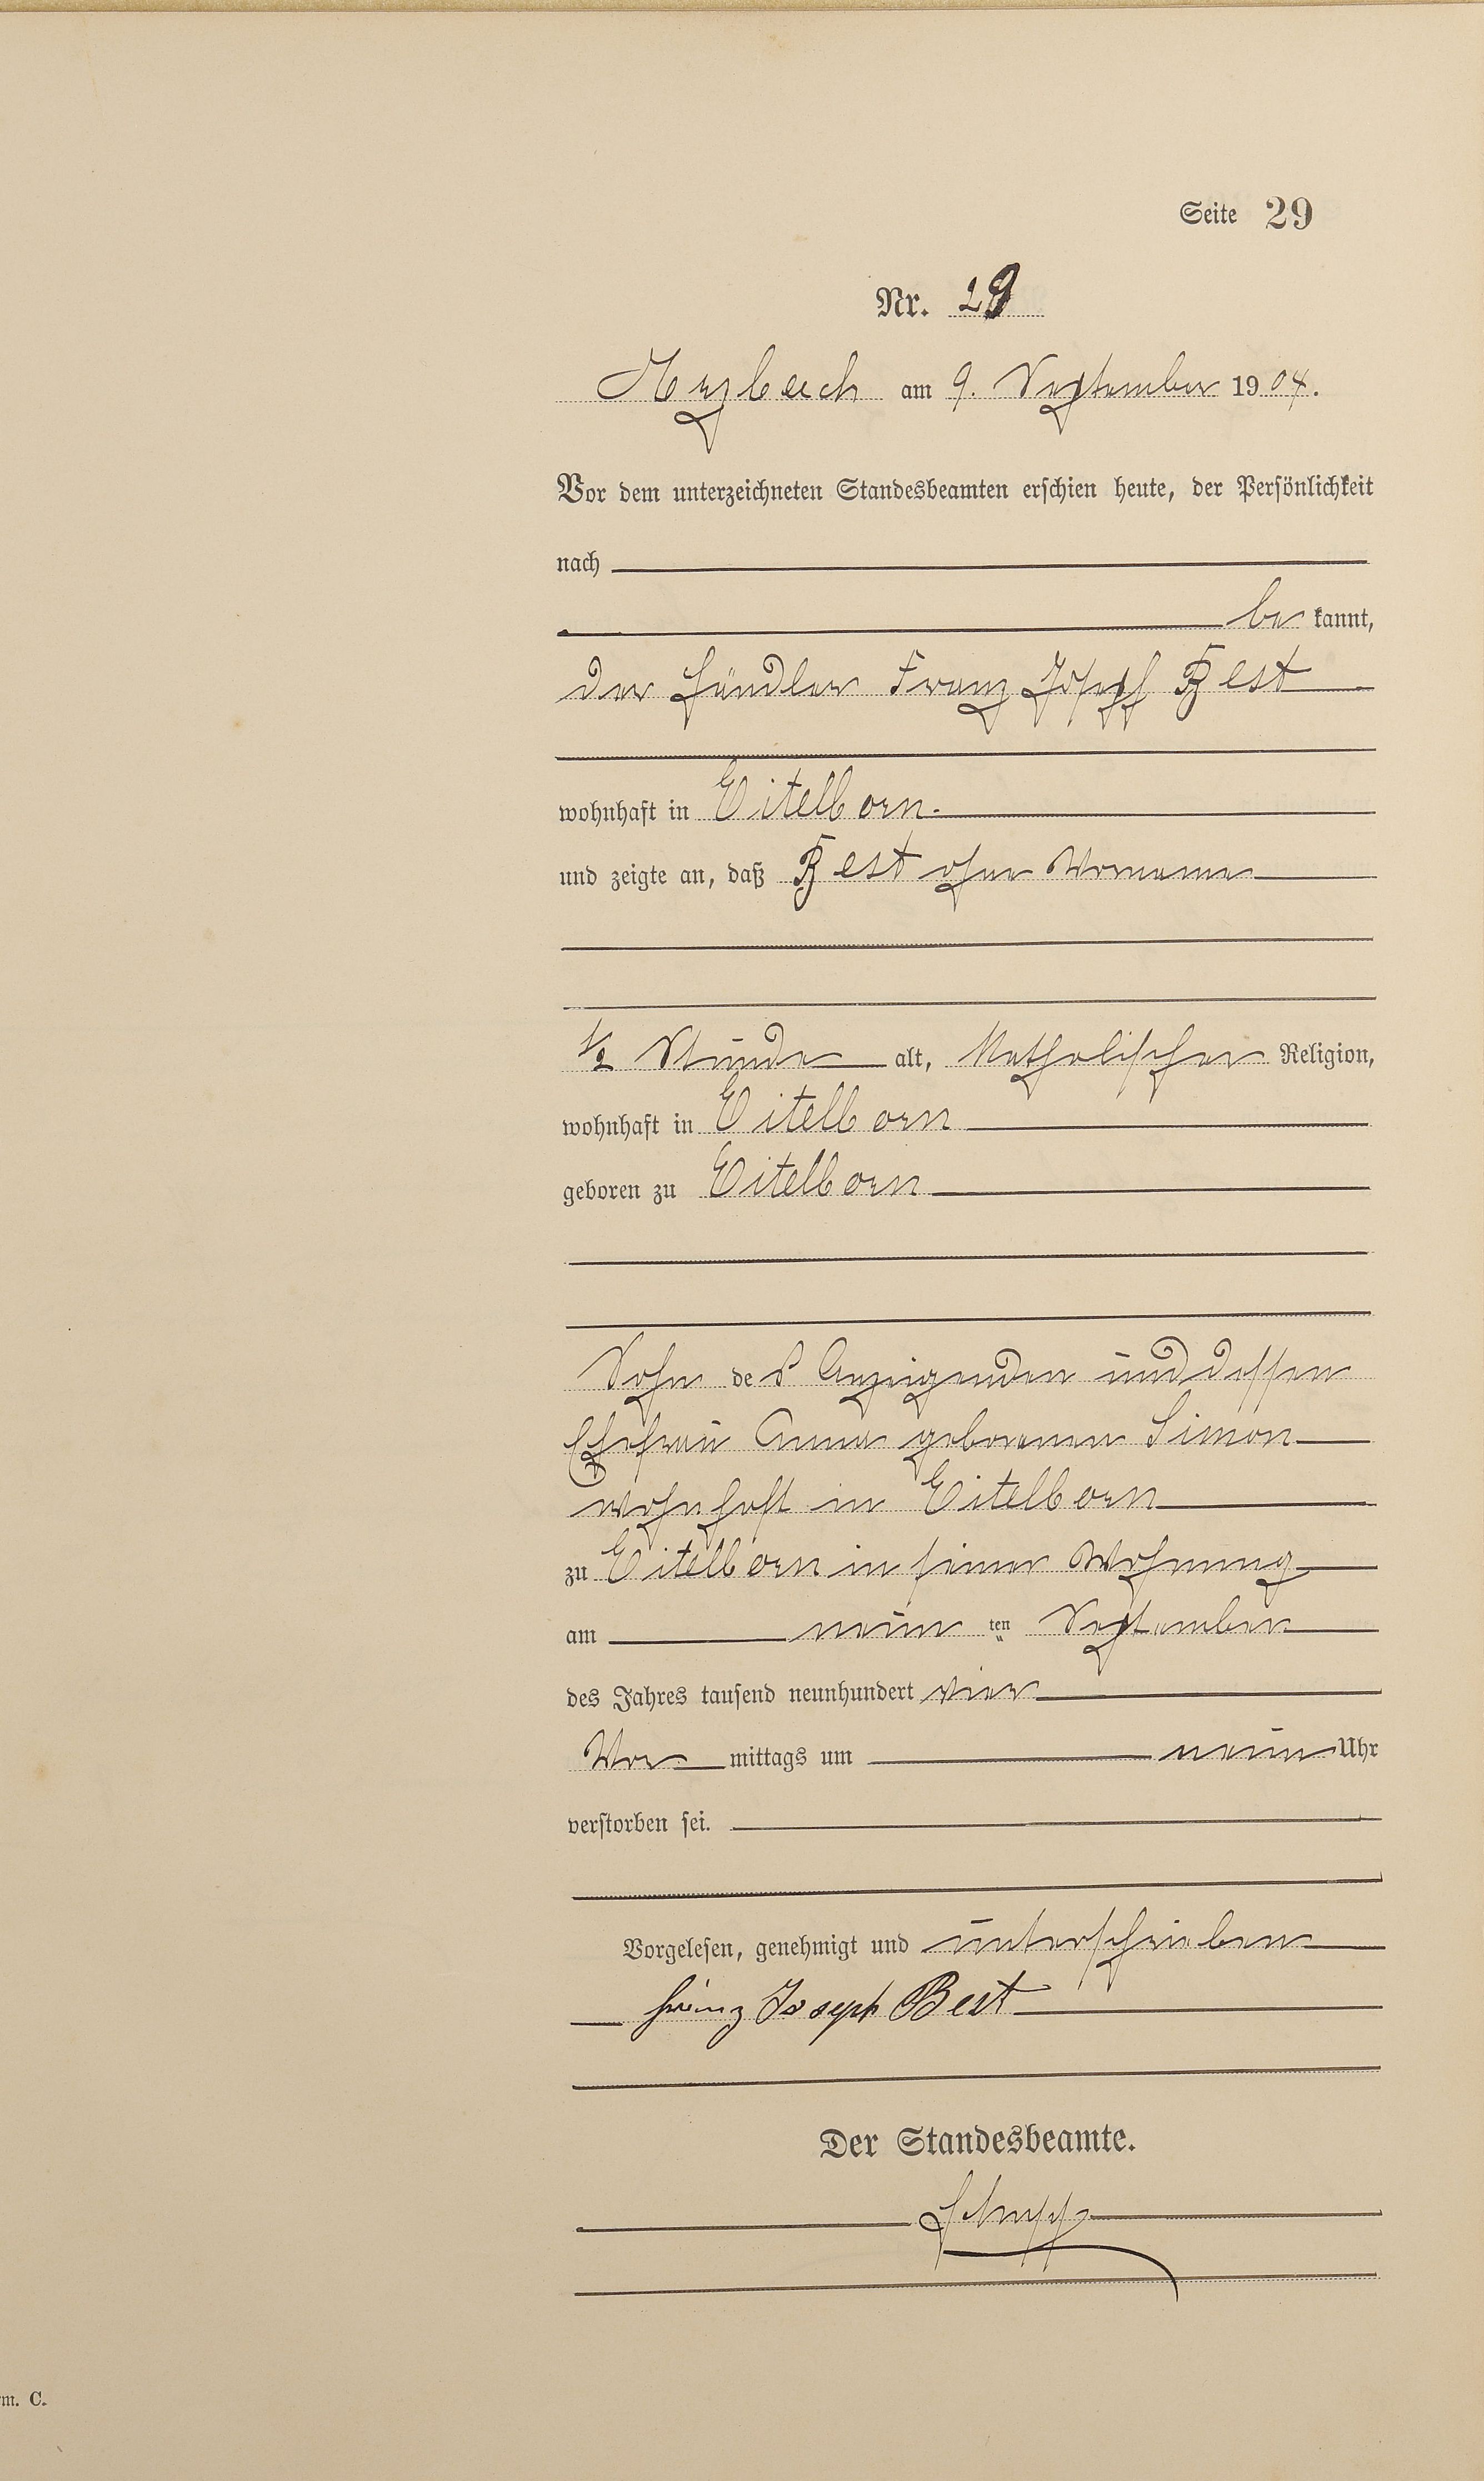 Seite 29
Nr. 29
am 9. September 1904.
Vor dem unterzeichneten Standesbeamten erschien heute, der Persönlichkeit
nach
be kannt,
der Händler Franz Josef Best
wohnhaft in Eitelborn.
und zeigte an, daß Best ohne Vorname
1/2 Stunde alt, Katholischer Religion,
wohnhaft in Eitelborn
geboren zu Eitelborn
Sohn des Anzeigenden und dessen
Ehefrau Anna geborenen Simon
wohnhaft in Eitelborn
zu Eitelborn in seiner Wohnung
am neun ten September
des Jahres tausend neunhundert vier
Vor mittags um neun Uhr
verstorben sei.
Vorgelesen, genehmigt und unterschrieben
Franz Joseph Best
Der Standesbeamte.
rm. C.